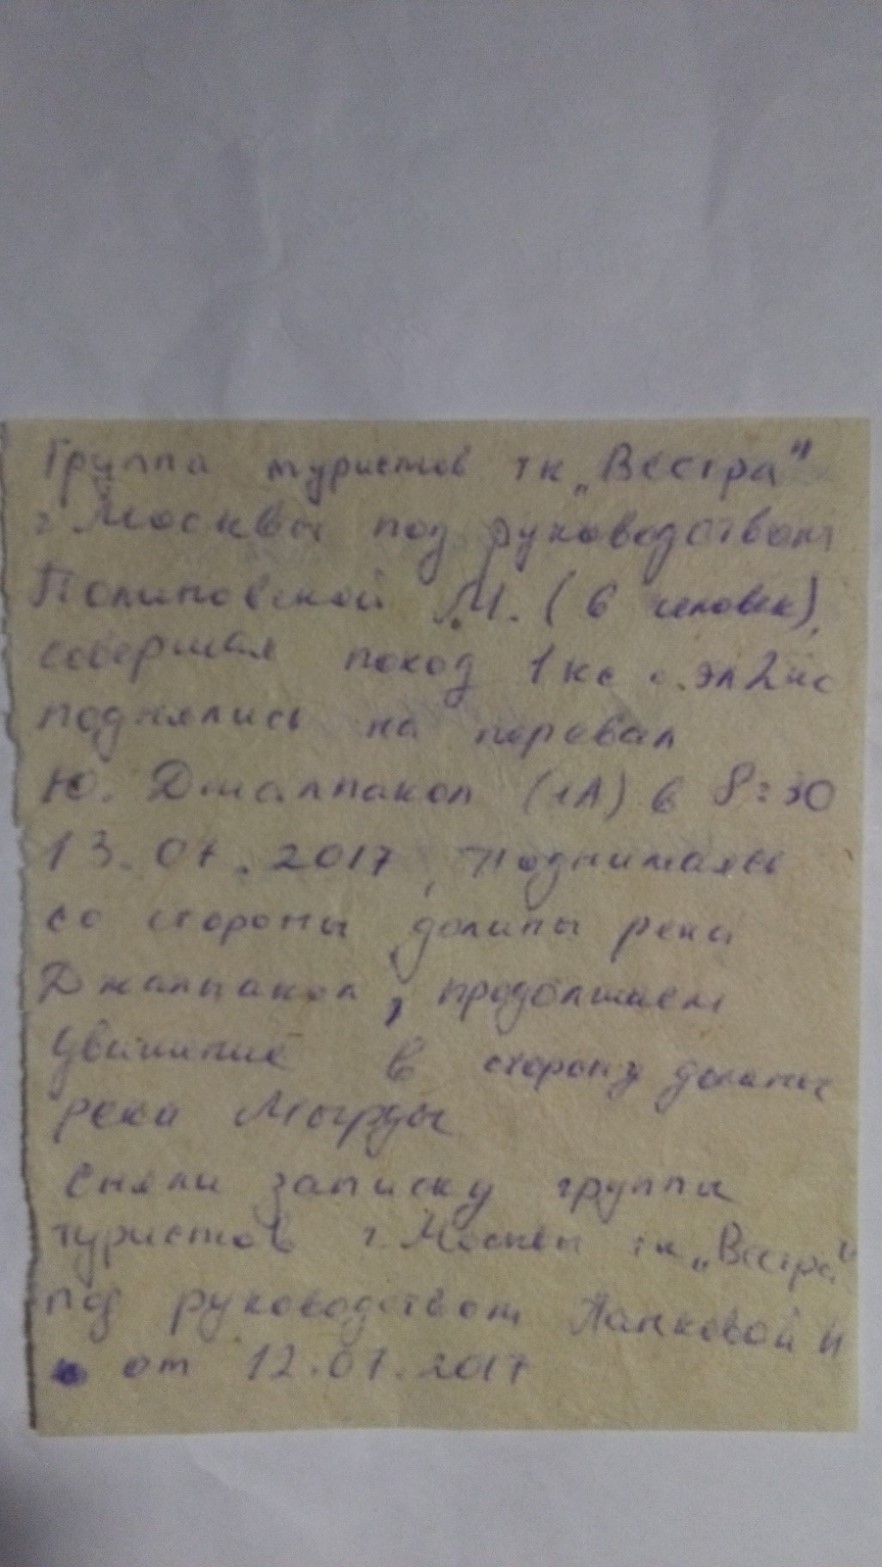 Группа туристов тк „Вестра"
г Москвы под руководством
М. (6 человек),
совершая поход 1кс с эл2кс
поднялись на перевал
Ю. Джалпакол (1А) в 8:30
13.07.2017, Поднимались
со стороны долины реки
Джалпакол, продолжаем
движение в сторону долины
реки Мырды
Сняли записку группы
туристов г. Москвы тк „Вестра"
под руководством Панковой И
от 12.07.2017